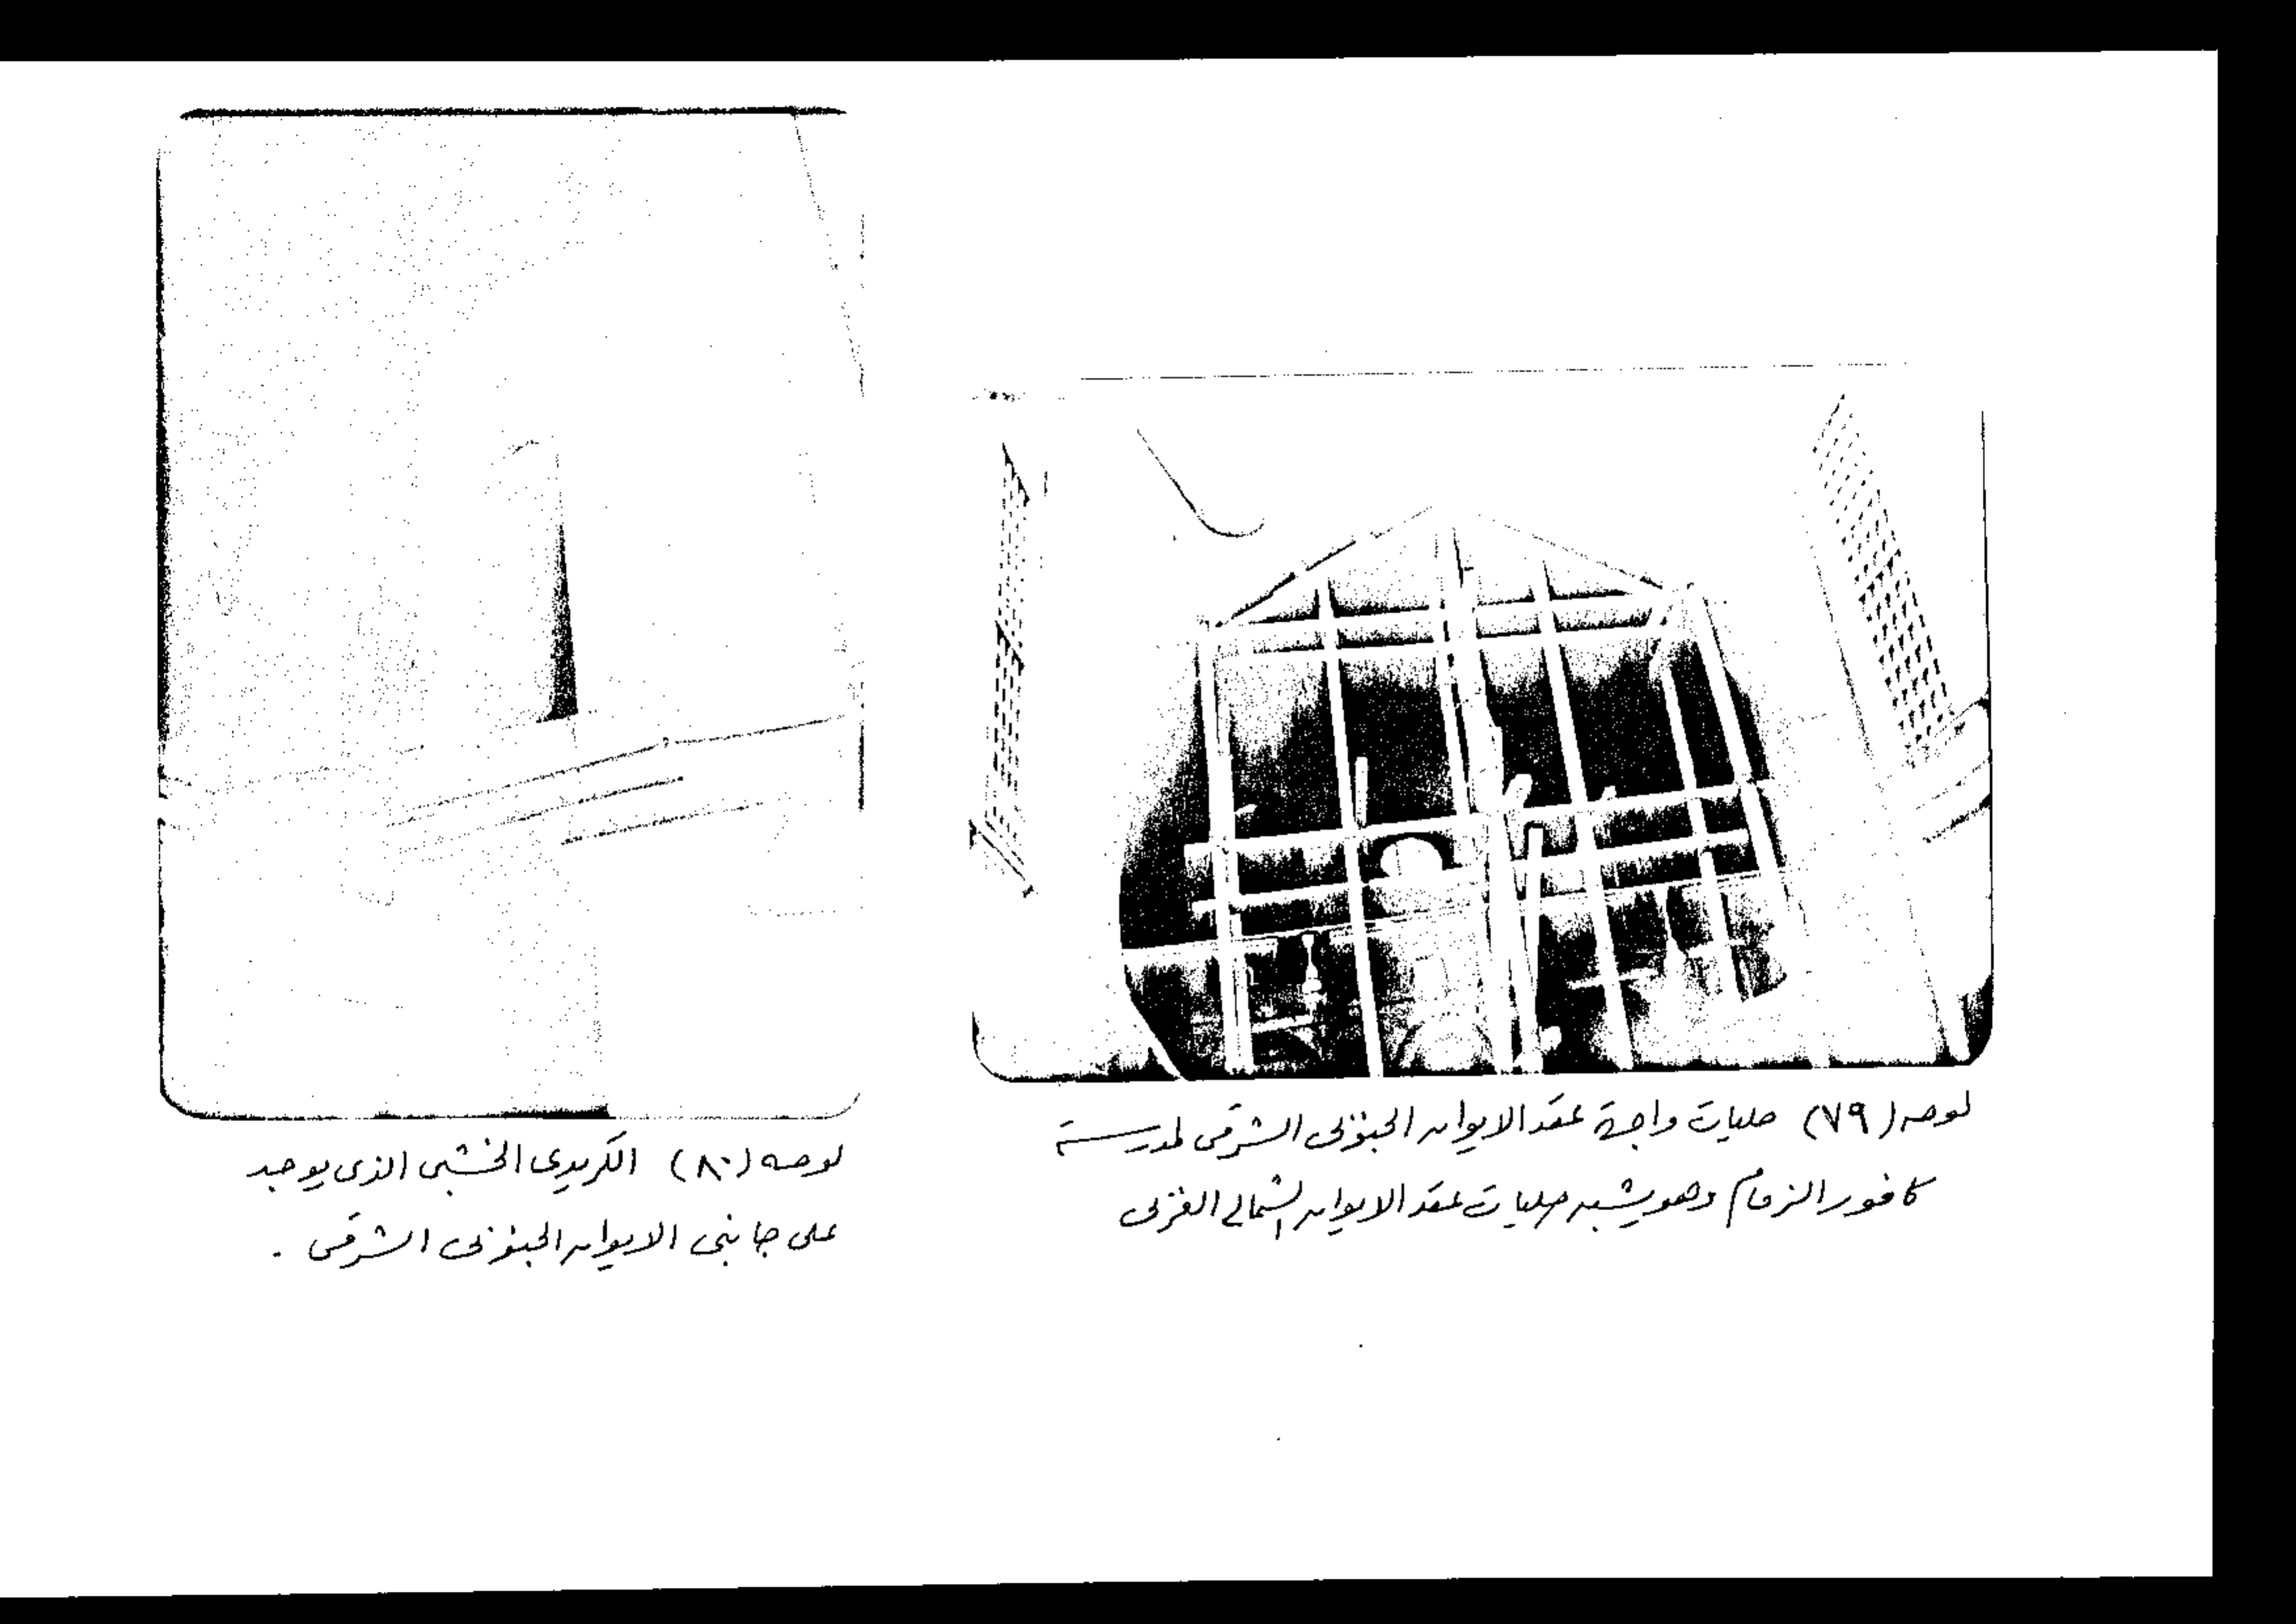 لوحه (٧٩) حليات واجهة عقد الايوان الجنوبى الشرقى لمدرسة
كافور الزمام وهو يشبه حليات عقد الايوان الشمالى الغربى
لوحه (٨٠) الكريدى الخشبى الذى يوجد
على جانبى الايوان الجنوبى الشرقى .